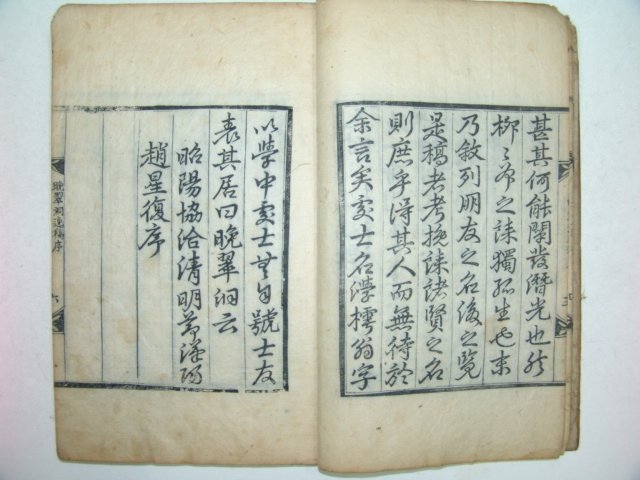 甚其何能闡發潛光也然
柳之序之誄獨孤生也末
乃敘列朋友之名後之覽
是稿者考挽誄諸賢之名
則庶乎得其人而無待於
余言矣處士名澤樗翁字
以學中處士無自號士友
表其居曰晩翠洞云
昭陽協洽清明節漢陽
趙星復序
晩翠洞逸稿序